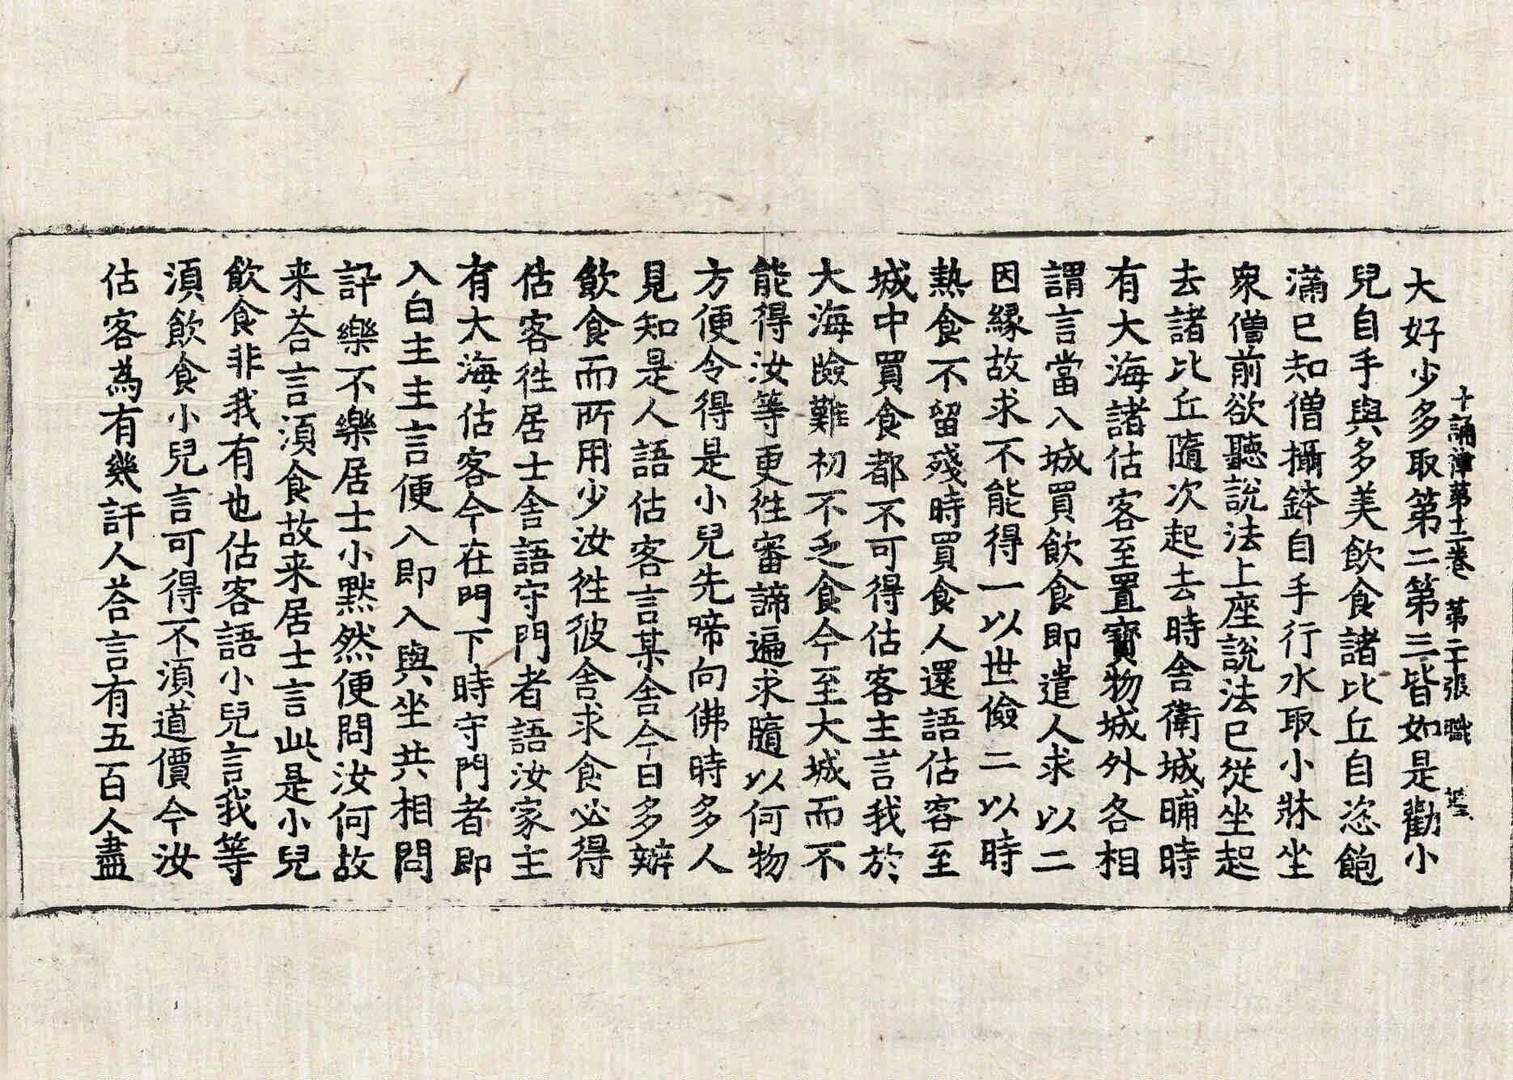 大好少多取第二第三皆如是勸小
十誦律第十二卷　第二十張　職
兒自手與多美飲食諸比丘自恣飽
滿已知僧攝鉢自手行水取小牀坐
衆僧前欲聽說法上座說法已從坐起
去諸比丘隨次起去時舍衛城晡時
有大海諸估客至置寶物城外各相
謂言當入城買飲食即遣人求以二
因緣故求不能得一以世儉二以時
熱食不留殘時買食人還語估客至
城中買食都不可得估客主言我於
大海嶮難初不乏食今至大城而不
能得汝等更徃審諦遍求隨以何物
方便令得是小兒先啼向佛時多人
見知是人語估客言某舍今日多辦
飲食而所用少汝徃彼舍求食必得
估客徃居士舍語守門者語汝家主
有大海估客今在門下時守門者即
入白主主言便入即入與坐共相問
訊樂不樂居士小默然便問汝何故
来荅言湏食故来居士言此是小兒
飲食非我有也估客語小兒言我等
湏飲食小兒言可得不湏道價今汝
估客為有幾許人荅言有五百人盡